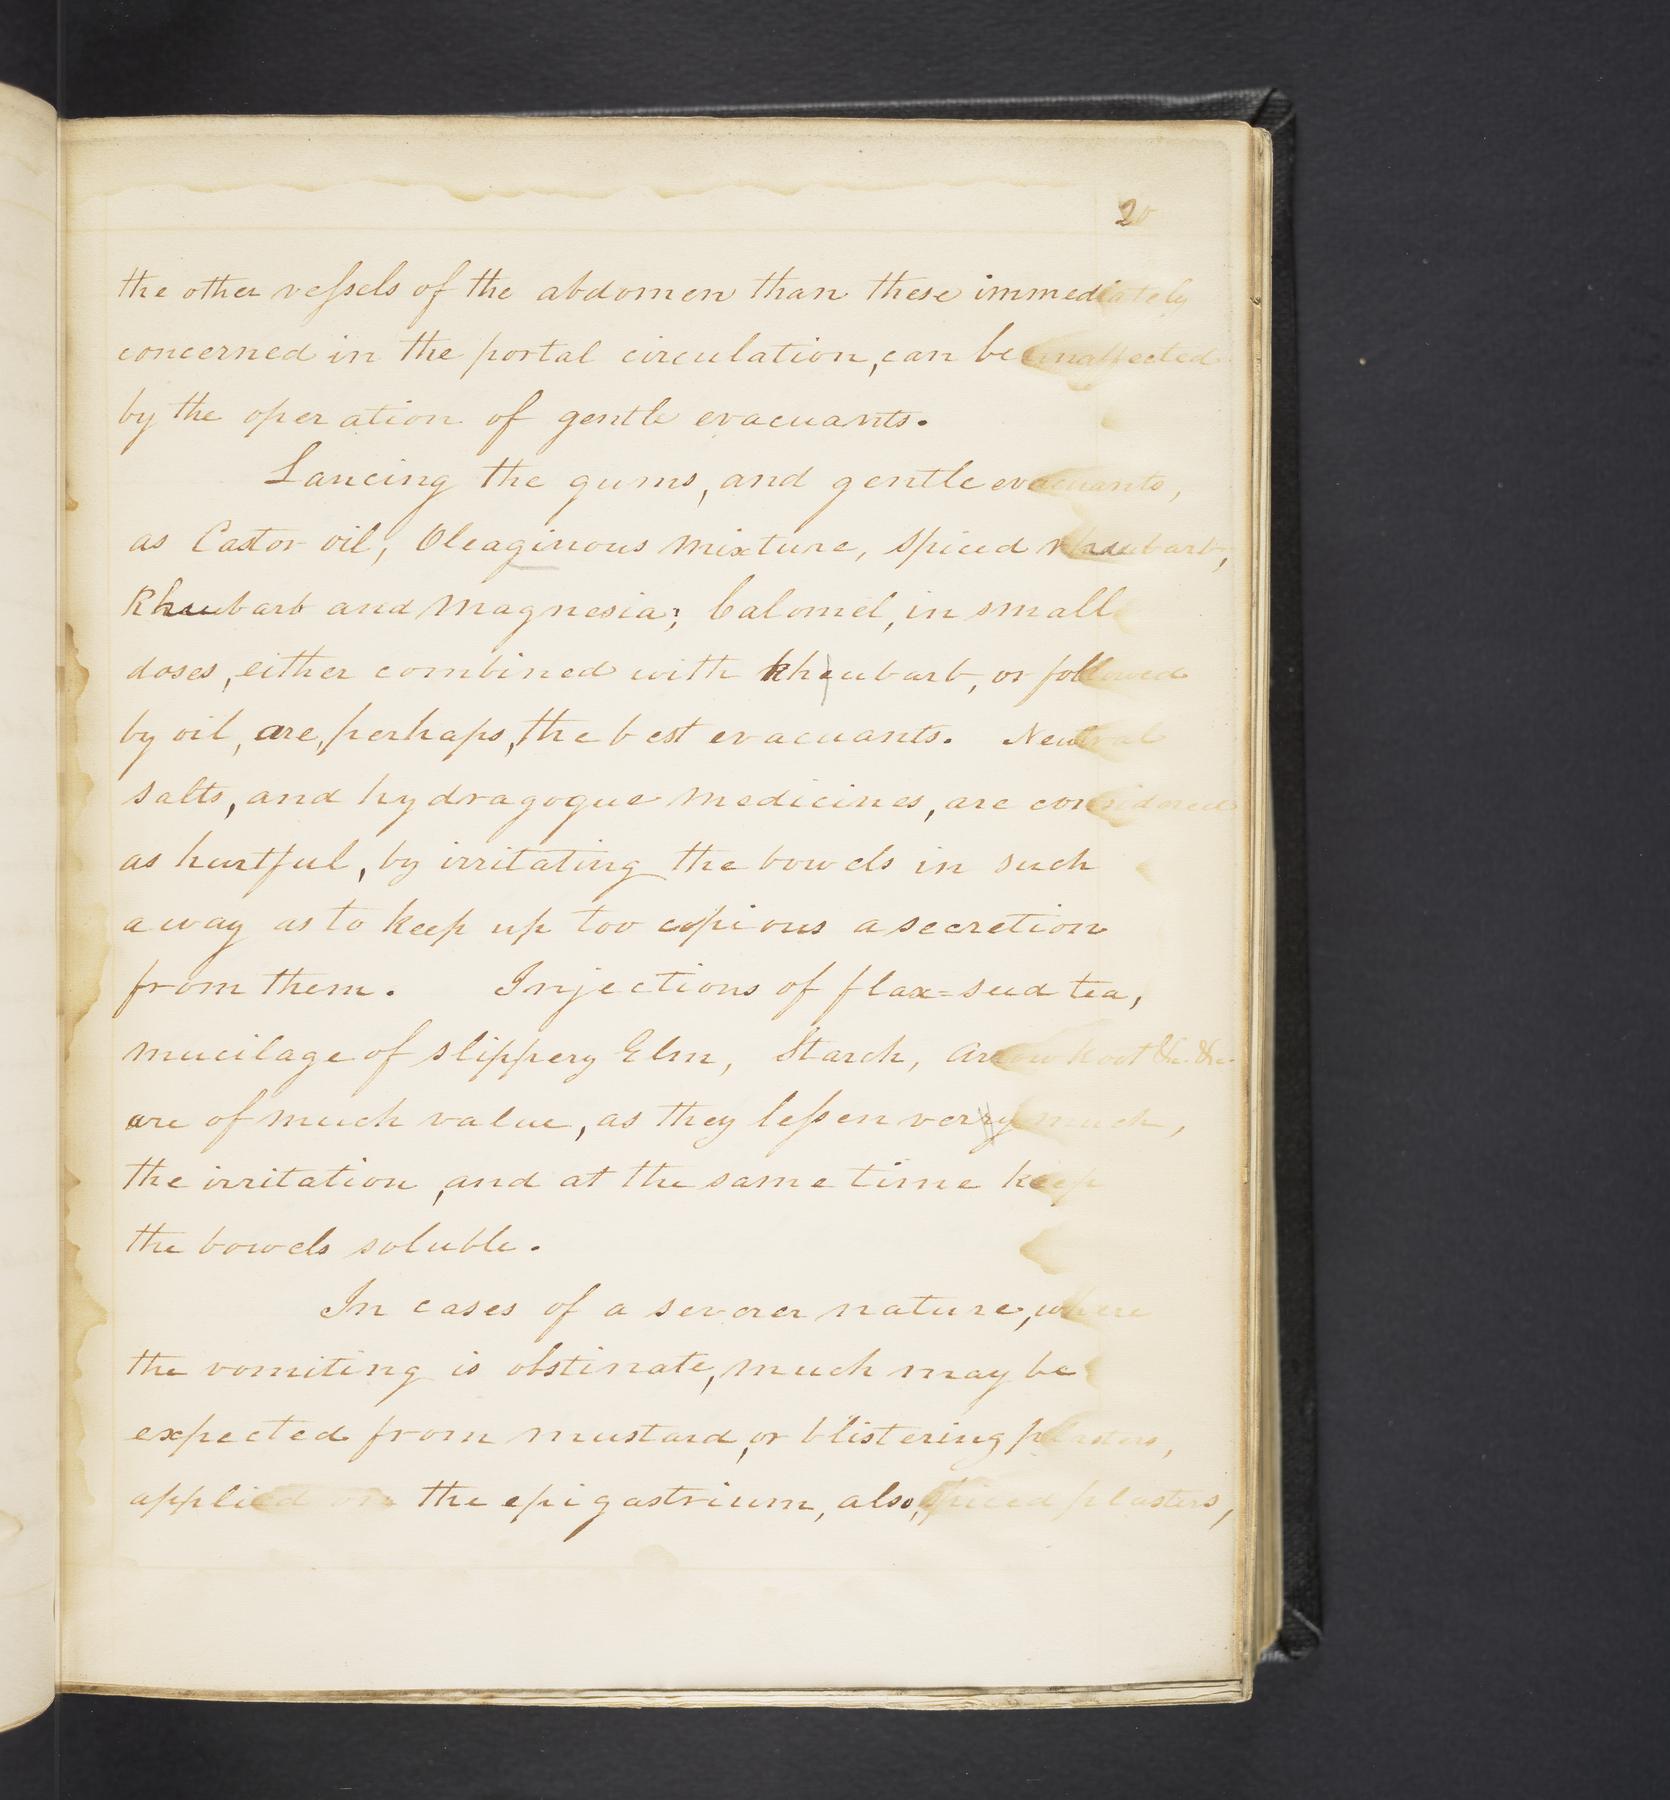 20
the other vessels of the abdomen than these immediately
concerned in the portal circulation, can be unaffected
by the operation of gentle evacuants.
Lancing the gums, and gentle evacuants,
as Castor oil, Oleaginous mixture, spiced rheubarb,
Rheubarb and Magnesia; Calomel, in small
doses, either combined with Rheubarb, or followed
by oil, are, perhaps, the best evacuants. Neutral
salts, and hydragogue medicines, are considered
as hurtful, by irritating the bowels in such
a way as to keep up too copious a secretion
from them. Injections of flax=seed tea,
mucilage of slippery Elm, Starch, Arrow Root &c. &c.
are of much value, as they lessen verry much,
the irritation, and at the same time keep
the bowels soluble.
In cases of a severer nature, where
the vomiting is obstinate, much may be
expected from mustard, or blistering plasters,
applied on the epigastrium, also, spiced plasters,